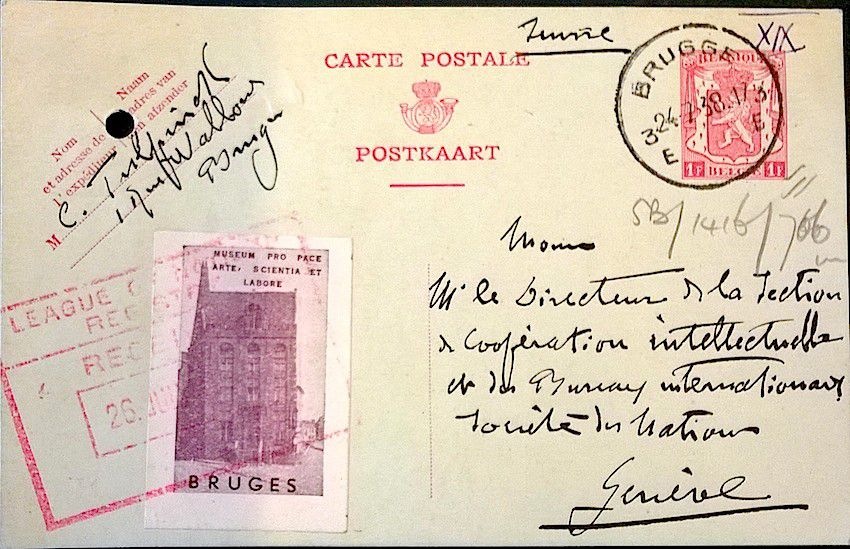 Suisse
XIX
CARTE POSTALE
POSTKAART
BRUGGE
24-2-38.17
E
3
E
3
BELGIQUE
1F BELGIË 1F
Nom
et adresse de
l'expéditeur
Naam
en adres van
den afzender
M. C. Tulpinck
1 rue Wallonne
Bruges
5B/1416/766
MUSEUM PRO PACE
ARTE, SCIENTIA ET
LABORE
BRUGES
LEAGUE
REGIST
RECE
26
Monsieur
Mr le Directeur de la Section
de Coopération intellectuelle
et des Bureaux internationaux
Société des Nations
Genève